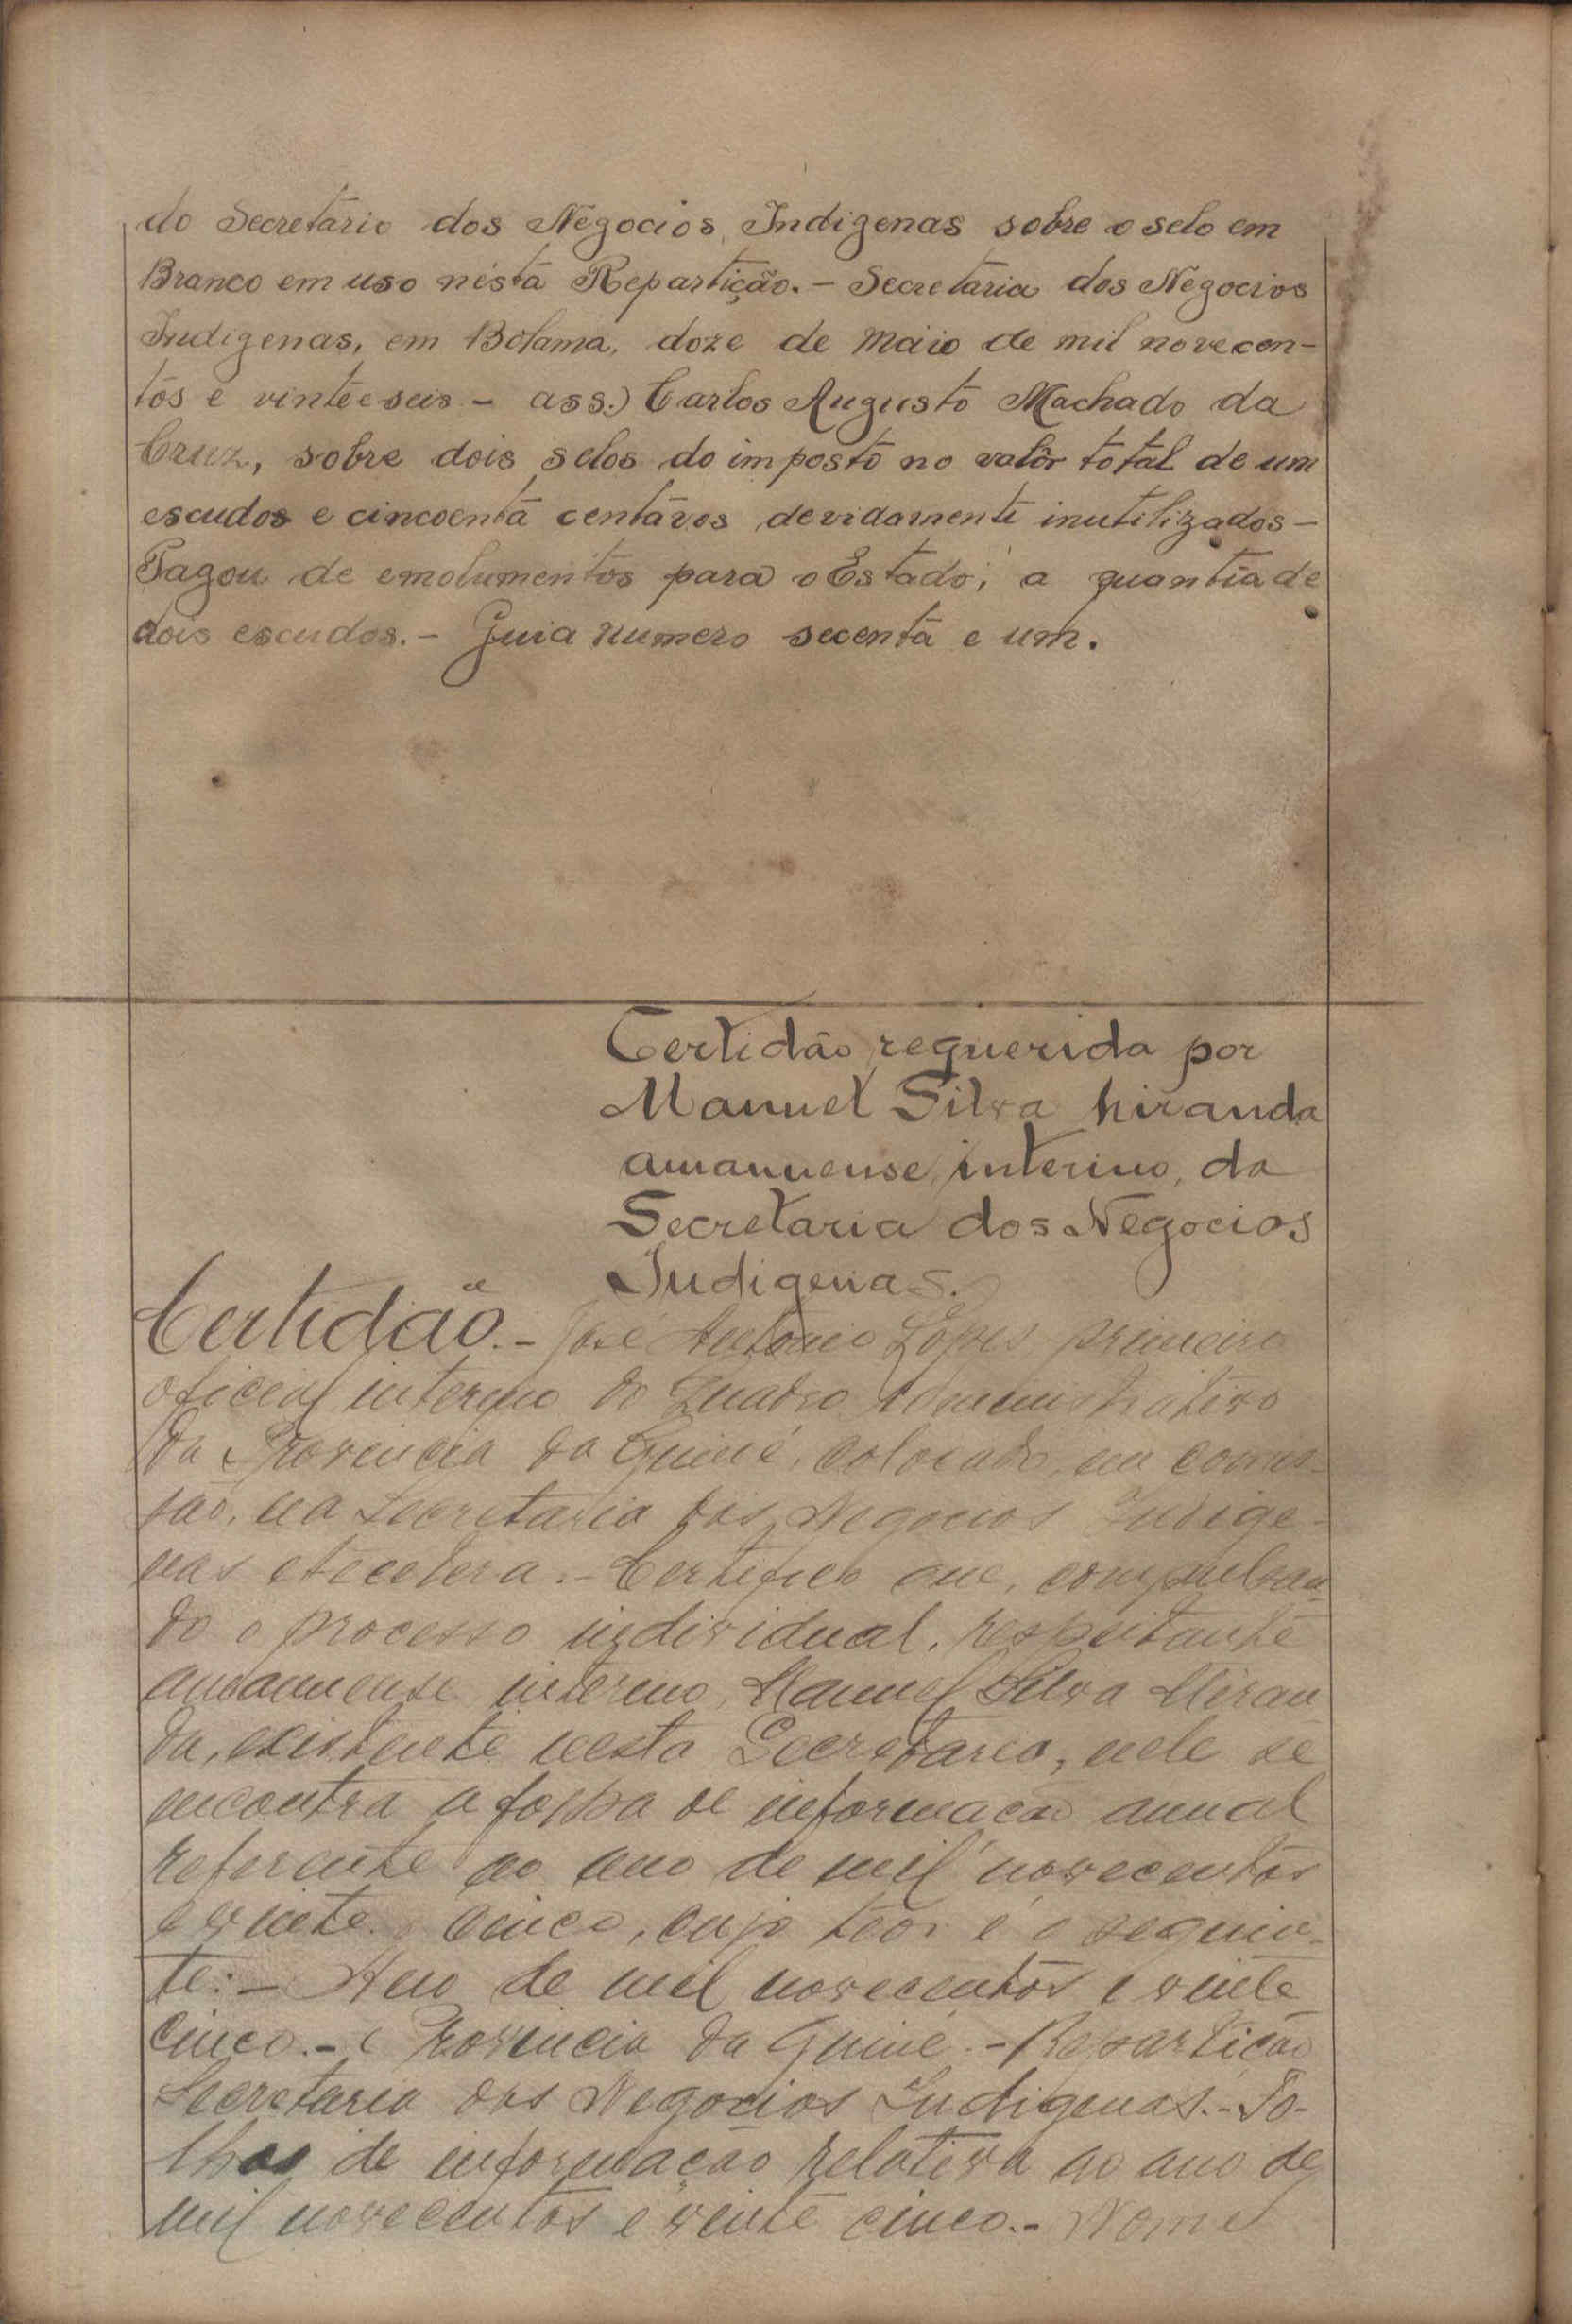 do Secretário dos Negocios Indigenas sobre o selo em
Branco em uso nésta Repartição. - Secretaria dos Negocios
Indigenas, em Bolama, doze de Maio de mil novecen-
tos e vinte e seis - ass.) Carlos Augusto Machado da
Cruz, sobre dois selos do imposto no valôr total de um
escudos e cincoenta centavos devidamente inutilizados -
Pagou de emolumentos para o Estado, a quantia de
dois escudos. - Guia numero secenta e um.
Certidão requerida por
Manuel Silva Miranda
amanuense, interino, da
Secretaria dos Negocios
Indigenas.
Certidão. - José Antonio Lopes, primeiro
oficial interino do Quadro Administrativo
da Provincia da Guiné, colocado, em comis-
são, na Secretaria dos Negocios Indige-
nas etecetera. - Certifico que, compulsan-
do o processo individual, respeitante
amanuense interino, Manuel Silva Miran
da, existente nesta Secretaria, nele se
encontra a folha de informação anual
referente ao ano de mil novecentos
e vinte cinco, cujo teor é o seguin-
te: - Ano de mil novecentos e vinte
cinco. - Provincia da Guiné. - Repartição
Secretaria dos Negocios Indigenas. - Fo-
lhas de informação relativa ao ano de
mil novecentos e vinte cinco. - Nome